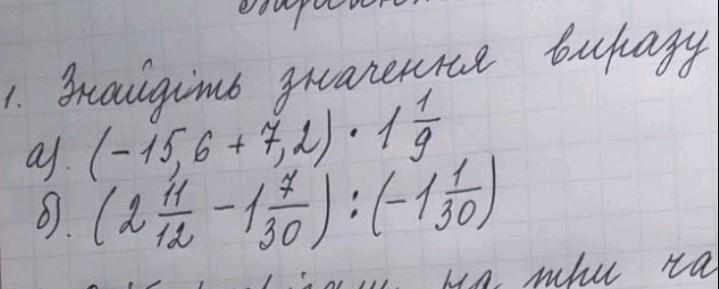 1. Знайдіть значення виразу
а). (-15,6 + 7,2) · 1 1/9
б). (2 11/12 - 1 7/30) : (-1 1/30)
на три ча